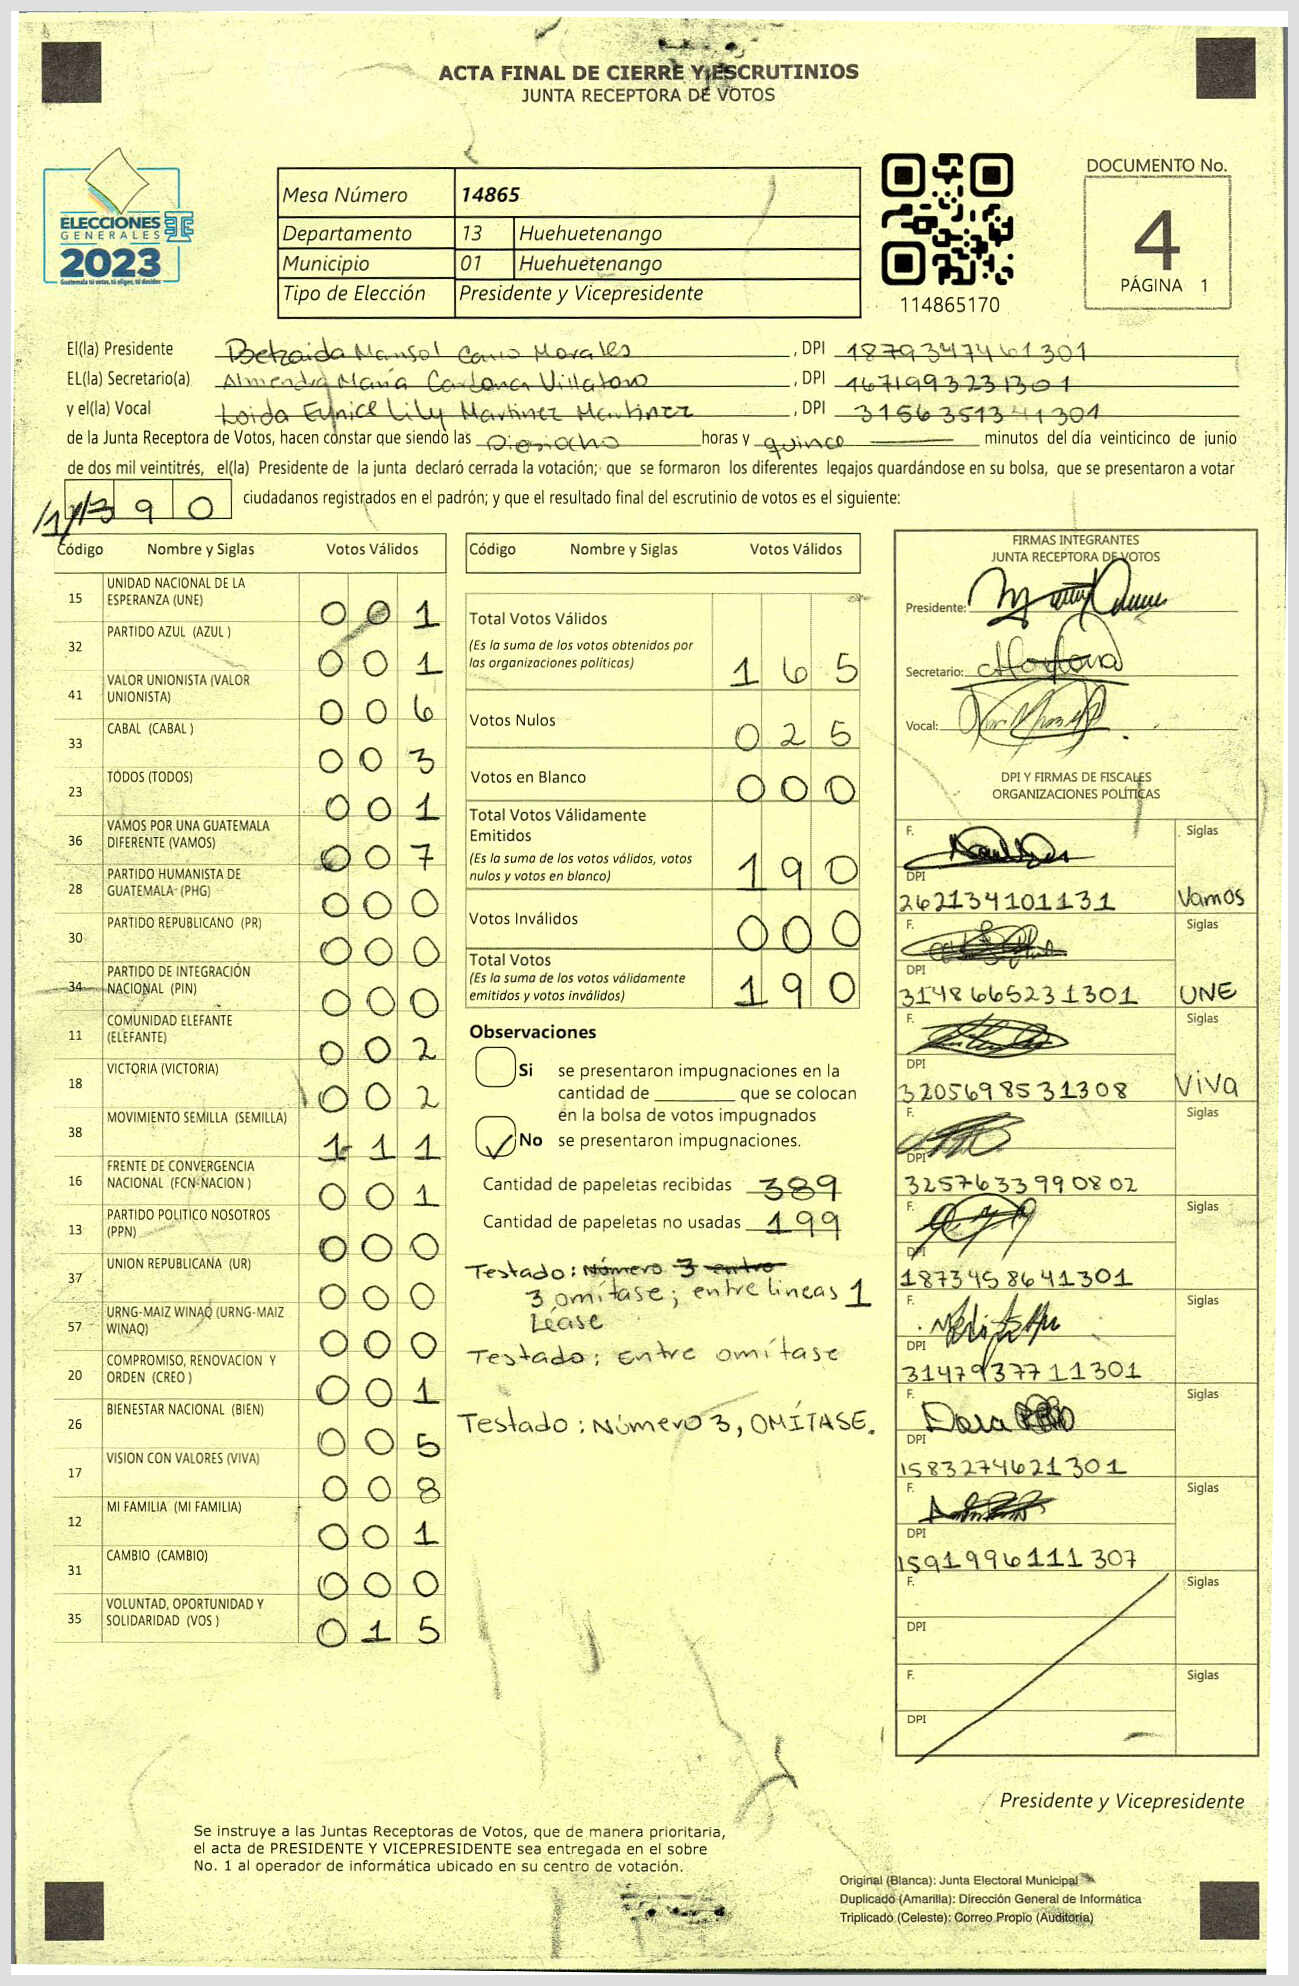 ACTA FINAL DE CIERRE Y ESCRUTINIOS
JUNTA RECEPTORA DE VOTOS
ELECCIONES
GENERALES
2023
Guatemala tú votas, tú eliges, tú decides
Mesa Número 14865
Departamento 13 Huehuetenango
Municipio 01 Huehuetenango
Tipo de Elección Presidente y Vicepresidente
114865170
DOCUMENTO No.
4
PÁGINA 1
El(la) Presidente Betzaida Marisol Cano Morales, DPI 1879347461301
EL(la) Secretario(a) Almendra María Cardona Villatoro, DPI 1671993231301
y el(la) Vocal Loida Eunice Lily Martinez Martinez, DPI 3156351341301
de la Junta Receptora de Votos, hacen constar que siendo las Dieciocho horas y quince minutos del día veinticinco de junio
de dos mil veintitrés, el(la) Presidente de la junta declaró cerrada la votación; que se formaron los diferentes legajos quardándose en su bolsa, que se presentaron a votar
/1/ 3 9 0 ciudadanos registrados en el padrón; y que el resultado final del escrutinio de votos es el siguiente:
Código Nombre y Siglas Votos Válidos
15 UNIDAD NACIONAL DE LA
ESPERANZA (UNE) 0 0 1
32 PARTIDO AZUL (AZUL ) 0 0 1
41 VALOR UNIONISTA (VALOR
UNIONISTA) 0 0 6
33 CABAL (CABAL ) 0 0 3
23 TODOS (TODOS) 0 0 1
36 VAMOS POR UNA GUATEMALA
DIFERENTE (VAMOS) 0 0 7
28 PARTIDO HUMANISTA DE
GUATEMALA (PHG) 0 0 0
30 PARTIDO REPUBLICANO (PR) 0 0 0
34 PARTIDO DE INTEGRACIÓN
NACIONAL (PIN) 0 0 0
11 COMUNIDAD ELEFANTE
(ELEFANTE) 0 0 2
18 VICTORIA (VICTORIA) 0 0 2
38 MOVIMIENTO SEMILLA (SEMILLA) 1 1 1
16 FRENTE DE CONVERGENCIA
NACIONAL (FCN-NACION ) 0 0 1
13 PARTIDO POLITICO NOSOTROS
(PPN) 0 0 0
37 UNION REPUBLICANA (UR) 0 0 0
57 URNG-MAIZ WINAQ (URNG-MAIZ
WINAQ) 0 0 0
20 COMPROMISO, RENOVACION Y
ORDEN (CREO ) 0 0 1
26 BIENESTAR NACIONAL (BIEN) 0 0 5
17 VISION CON VALORES (VIVA) 0 0 8
12 MI FAMILIA (MI FAMILIA) 0 0 1
31 CAMBIO (CAMBIO) 0 0 0
35 VOLUNTAD, OPORTUNIDAD Y
SOLIDARIDAD (VOS ) 0 1 5
Código Nombre y Siglas Votos Válidos
Total Votos Válidos
(Es la suma de los votos obtenidos por
las organizaciones políticas) 1 6 5
Votos Nulos 0 2 5
Votos en Blanco 0 0 0
Total Votos Válidamente
Emitidos
(Es la suma de los votos válidos, votos
nulos y votos en blanco) 1 9 0
Votos Inválidos 0 0 0
Total Votos
(Es la suma de los votos válidamente
emitidos y votos inválidos) 1 9 0
Observaciones
Si se presentaron impugnaciones en la
cantidad de ________ que se colocan
en la bolsa de votos impugnados
No se presentaron impugnaciones.
Cantidad de papeletas recibidas 389
Cantidad de papeletas no usadas 199
Testado: Número 3 entre
3 omítase; entre lineas 1
Léase
Testado: Entre omítase
Testado: Número 3, OMÍTASE.
FIRMAS INTEGRANTES
JUNTA RECEPTORA DE VOTOS
Presidente:
Secretario:
Vocal:
DPI Y FIRMAS DE FISCALES
ORGANIZACIONES POLÍTICAS
F. Siglas
DPI
262134101131 Vamos
F. Siglas
DPI
3148665231301 UNE
F. Siglas
DPI
3205698531308 VIVA
F. Siglas
DPI
3257633990802
F. Siglas
DPI
1873458641301
F. Siglas
DPI
3147937711301
F. Siglas
DPI
1583274621301
F. Siglas
DPI
1591996111307
F. Siglas
DPI
F. Siglas
DPI
Presidente y Vicepresidente
Se instruye a las Juntas Receptoras de Votos, que de manera prioritaria,
el acta de PRESIDENTE Y VICEPRESIDENTE sea entregada en el sobre
No. 1 al operador de informática ubicado en su centro de votación.
Original (Blanca): Junta Electoral Municipal
Duplicado (Amarilla): Dirección General de Informática
Triplicado (Celeste): Correo Propio (Auditoría)